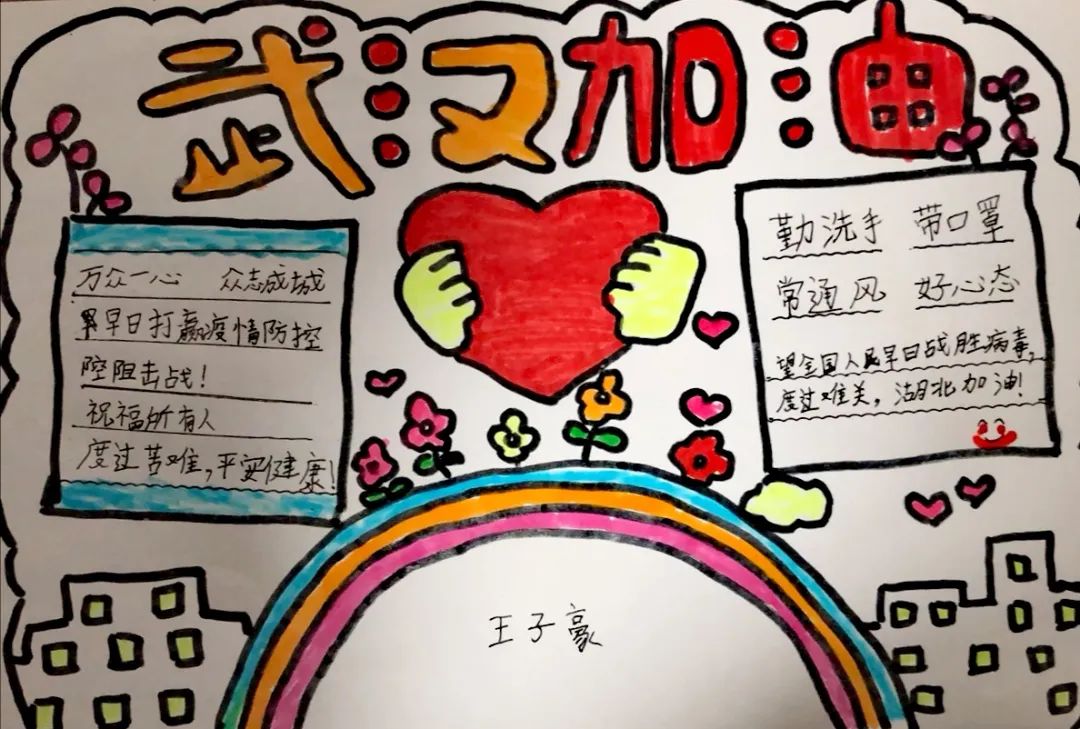 武汉加油
万众一心 众志成城
早日打赢疫情防控
阻击战!
祝福所有人
度过苦难,平安健康!
勤洗手 带口罩
常通风 好心态
望全国人民早日战胜病毒,
度过难关,湖北加油!
王子豪